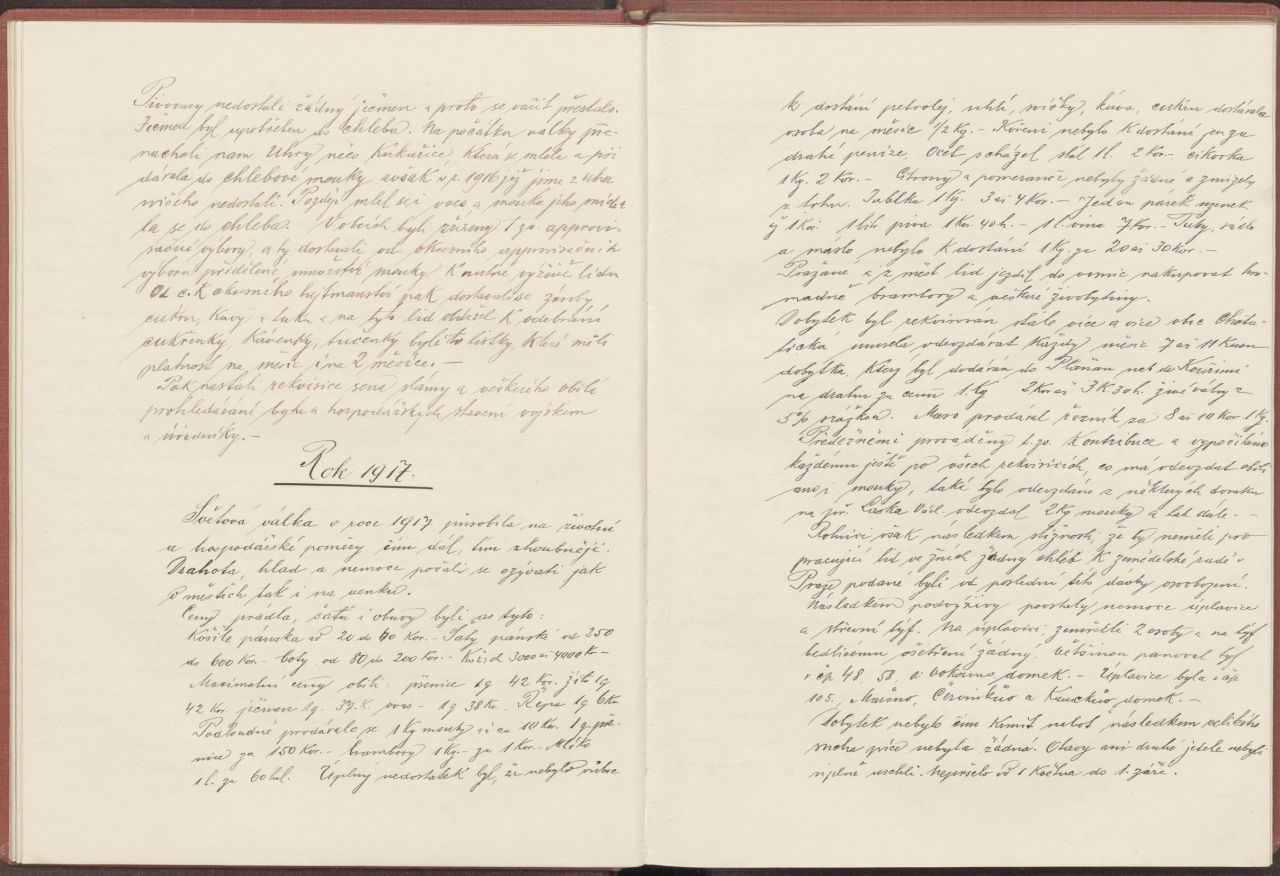 Pivovary nedostali žádný ječmen a proto se vařit přestalo.
Ječmen byl upotřeben do chleba. Na počátku války při-
nachali nam Uhry něco Kukuřice, která se mlela a při
dávala do chlebové mouky avšak v r. 1916 již jsme z Uher
ničeho nedostali. Později mlel se i oves a mouka jeho mícha-
la se do chleba. V obcích byly zřízeny t. zv. approvi-
sační výbory, a ty dostávali od okresního approvisačního
výboru přidělené množství mouky K nutné výživě lidu
Od c. K okresního hejtmanství pak dostávali se zásoby
cukru, Kávy a tuku a na tyto lid obdržel K odebrání
cukřenky, Kávenky, tucenky byly to lístky, Které měli
platnost na měsíc i na 2 měsíce. –
Pak nastali rekvisice sena slámy a veškerého obilí
prohledávání bytu a hospodářských stavení vojskem
a úředníky. –
Rok 1917.
Světová válka v roce 1917 působila na životní
a hospodářské poměry čím dál, tím zhoubněji.
Drahota, hlad a nemoce počali se ozývati jak
v městech tak i na venku.
Ceny prádla, šatu i obuvy byli as tyto:
Košile pánska od 20 do 40 Kor. – Šaty pánské od 250
do 600 Kor. – boty od 80 do 200 Kor. – Kožich 3000 až 4000 K –
Maximalní ceny obilí: pšenice 1q 42 Kor. žito 1q
42 Kor. ječmen 1q. 37. K oves – 1q 38 Ko. Řepa 1q 6 Ko
Podloudně prodávalo se 1 Kg mouky až za 10 Kor. 1q pše-
nice za 150 Kor. – brambory 1 Kg. – za 1 Kor. – Mléko
1 l. za 60 hal. Úplny nedostatek byl, že nebylo vůbec
k dostání petrolej, uhlí, svíčky, káva, cukru dostávala
osoba na měsíc 1/2 Kg. – Koření nebylo K dostání jen za
drahé peníze. Ocet scházel stál 1 l. 2 Kor. – cikorka
1 Kg. 2 Kor. – Citrony a pomeranče nebyly žádné a zmizely
z trhu. Jablka 1 Kg. 3 až 4 Kor. – Jeden párek uzenek
1 Kor. 1 litr piva 1 Kor. 40 h. – 1 l. vína 7 Kor. – Tuky, sádlo
a máslo nebylo K dostání 1 Kg. za 20 až 30 Kor. –
Pražané a z měst lid jezdil do vesnic nakupovat hro-
madně brambory a veškeré životyliny.
Dobytek byl rekvirován stále více a více obec Chotu-
ticka musela odevzdávat Každý měsíc 7 až 11 Kusu
dobytka, Který byl dodáván do Plaňan neb do Kouřimi
na drahu za cenu 1 Kg 2 Kor až 3 K. 30 h. živé váhy z
5% srážkou. Maso prodával řezník za 8 až 10 Kor. 1 Kg.
Předežněmi prováděny t. zv. Kontribuce a vypočítáno
každému ještě po všech rekvisicích, co má odevzdat obilí
ano i mouky, také bylo odevzdáno z některých domku
na př. Laska Václ. odevzdal 2 Kg mouky a tak dále. –
Rolníci však následkem stížnosti, že by neměli pro
pracující lid ve žních žádný chleb K zemědelské radě v
Praze podane byli od poslední této dávky osvobozeni.
Následkem podvýživy povstaly nemoce úplavice
a střevní tyf. Na úplavici zemřeli 2 osoby a na tyf
bedlivému ošetření žádný. Většinou panoval tyf
v čp 48, 58, a domek. – Úplavice byla v čp
105., domek. –
Dobytek nebylo čím Krmit neboť následkem velikého
sucha píce nebyla žádná. Otavy ani druhé jetele nebyly
úplně uschli. Nepršelo od 1 Května do 1. září.